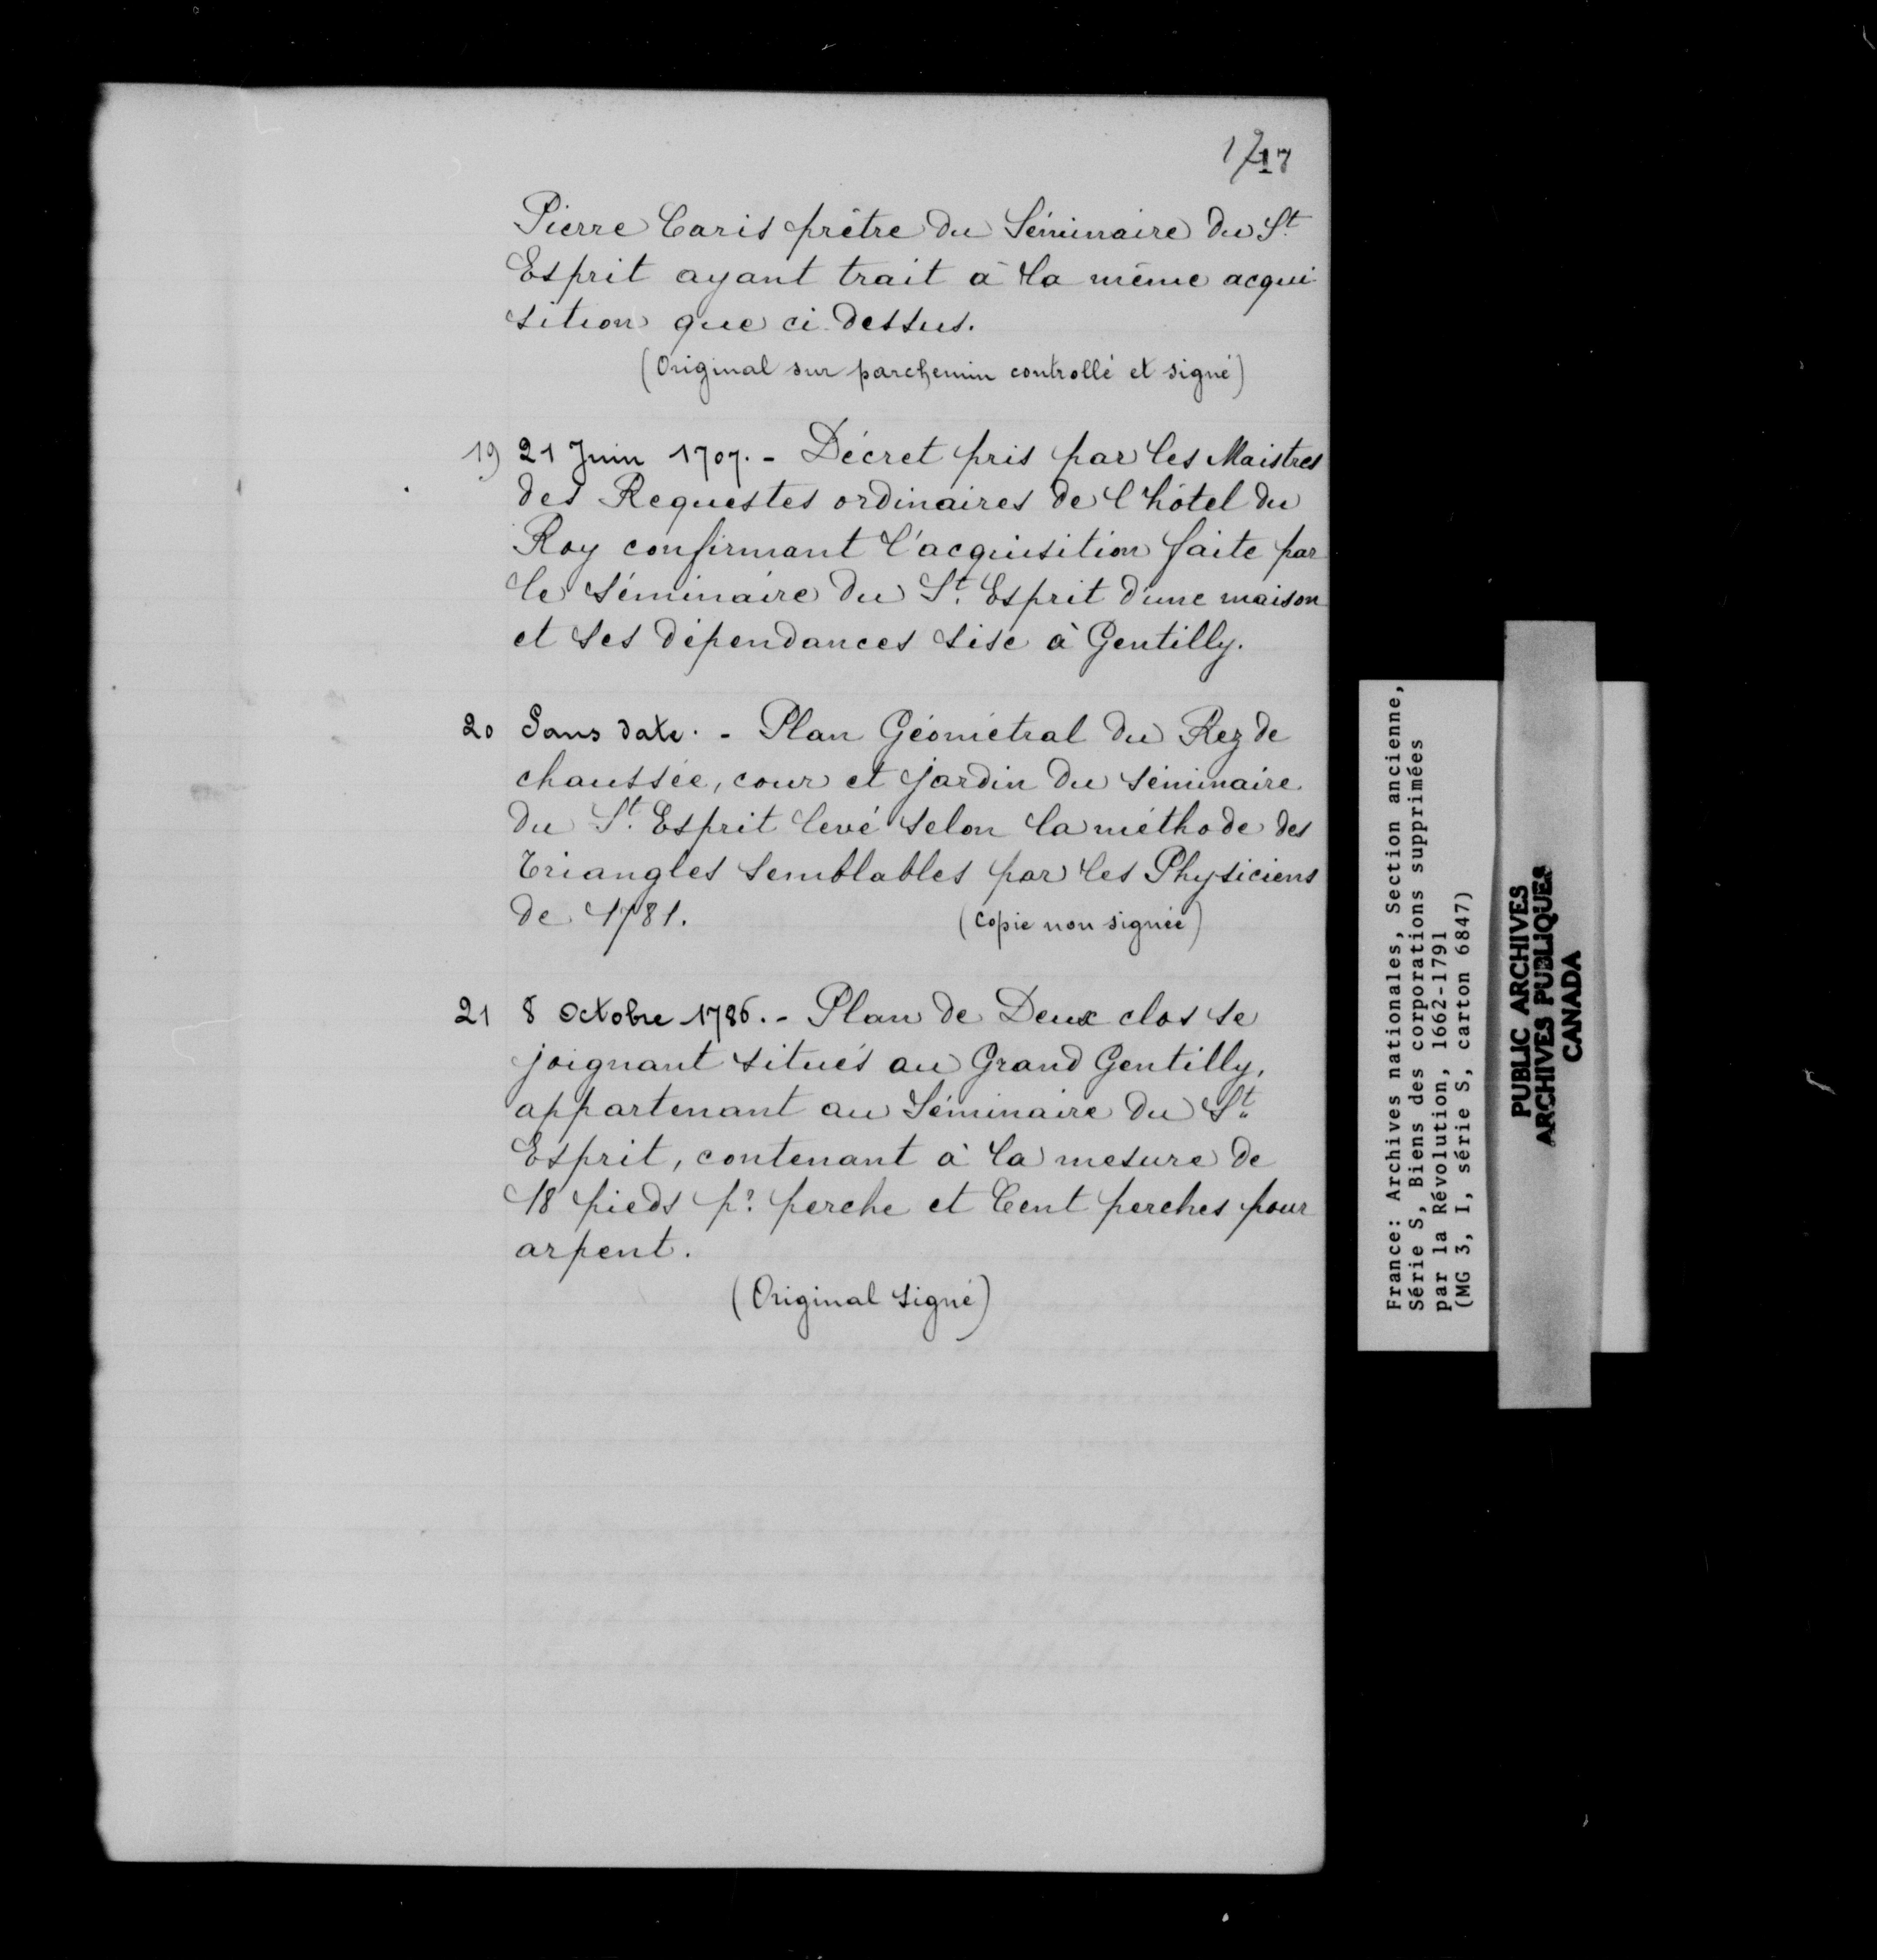 17
Pierre Caris prêtre du Séminaire du St.
Esprit ayant trait à la même acqui-
sition que ci-dessus.
(Original sur parchemin controllé et signé)
19 21 Juin 1707. - Décret pris par les Maistres
des Requestes ordinaires de l'hôtel du
Roy confirmant l'acquisition faite par
le Séminaire du St. Esprit d'une maison
et ses dépendances sise à Gentilly.
20 Sans date. - Plan Géométral du Rez de
chaussée, cour et jardin du séminaire
du St. Esprit levé selon la méthode des
triangles semblables par les Physiciens
de 1781. (Copie non signée)
21 8 Octobre 1786. - Plan de Deux clos se
joignant situés au Grand Gentilly,
appartenant au Séminaire du St.
Esprit, contenant à la mesure de
18 pieds pr. perche et Cent perches pour
arpent.
(Original signé)
France: Archives nationales, Section ancienne,
Série S, Biens des corporations supprimées
par la Révolution, 1662-1791
(MG 3, I, série S, carton 6847)
PUBLIC ARCHIVES
ARCHIVES PUBLIQUES
CANADA